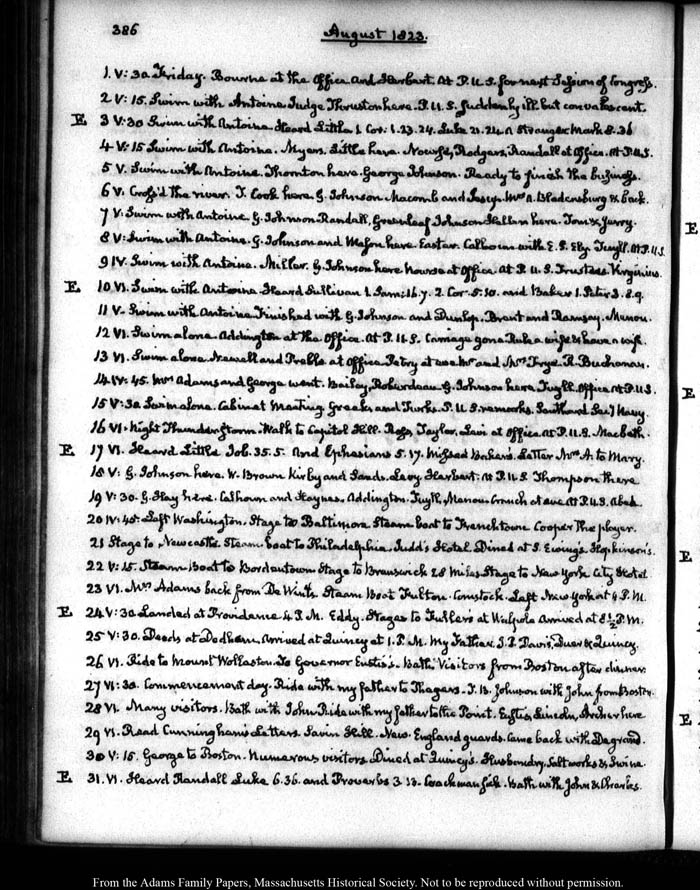 386
August 1823.
1. V:30 Friday. Bourne at the Office and Herbert. At P.U.S. for next Session of Congress.
2 V:15. Swim with Antoine. Judge Thruston here. P.U.S. suddenly ill but convalescent.
E 3 V:30 Swim with Antoine. Heard Little 1. Cor: 1.23.24. Luke 21.24. A Stranger Mark 8.36
4 V:15 Swim with Antoine. Myers. Little here. Rodgers, Randall at Office. At P.U.S.
5 V. Swim with Antoine. Thornton here. George Johnson. Ready to finish the business.
6 V. Cross'd the river. T. Cook here. G. Johnson Macomb and Mrs. A. Bladensburg & back.
7 V. Swim with Antoine. G. Johnson Randall, Greenleaf Johnson Hellen here. Tom & Jerry.
8 V. Swim with Antoine. G. Johnson and Mason here. Easter. Calhoun with E. S. Ely. Tuyll. At P.U.S.
9 IV. Swim with Antoine. Miller. G. Johnson here at Office. At P.U.S. Trustees Virginius.
E 10 VI. Swim with Antoine. Heard Sullivan 1. Sam: 16.7. 2 Cor. 5.10. and Baker 1. Peter 3.8.9.
11 V. Swim with Antoine. Finished with G. Johnson and Dunlop. Brent and Ramsay. Menou.
12 VI. Swim alone. Addington at the Office. At P.U.S. Carriage gone Rule a wife & have a wife.
13 VI. Swim alone. Newell and Preble at Office. Petry at eve. Mr. and Mrs. Frye. R. Buchanan.
14 IV:45. Mrs. Adams and George went. Bailey, Roberdeau. G. Johnson here. Tuyll. Office At P.U.S.
15 V:30 Swim alone. Cabinet Meeting Greeks and Turks. P.U.S. remarks. Southard Sec'y Navy.
16 VI. Night Thunder Storm. Walk to Capitol Hill. Taylor, Law at Office. At P.U.S. Macbeth.
E 17 VI. Heard Little Job. 35.5. and Ephesians 5.17. Missed Baker's. Letter Mrs. A. to Mary.
18 V: G. Johnson here. W. Brown Kirby and Sands. Levy Herbert. At P.U.S. Thompson there
19 V:30. G. Hay here. Calhoun and Haynes. Addington. Tuyll, Menou Cranch at eve. At P.U.S.
20 IV:45. Left Washington. Stage to Baltimore Steam boat to Frenchtown Cooper the player.
21 Stage to Newcastle. Steam boat to Philadelphia. Judd's Hotel. Dined at S. Ewing's Hopkinson's.
22 V:15. Steam Boat to Bordentown Stage to Brunswick 28 Miles Stage to New York City Hotel.
23 VI. Mrs. Adams back from De Wint's Steam Boat Fulton. Comstock. Left New York at 4 P.M.
E 24 V:30 Landed at Providence 4 P.M. Eddy. Stages to Fuller's at Walpole arrived at 8½ P.M.
25 V:30. Deeds at Dedham. Arrived at Quincy at 1. P.M. My Father. Davis, Duer & Quincy.
26 VI. Ride to Mount Wollaston. To Governor Eustis's. Bath. Visitors from Boston after dinner.
27 VI:30. Commencement day. Ride with my father to Thayers. T. B. Johnson with John from Boston.
28 VI. Many visitors. Bath with John. Ride with my father to the Point. Eustis, Lincoln, Archer here
29 VI. Read Cunningham's Letters. Savin Hill. New England guards. Came back with Degrand.
30 V:15. George to Boston. Numerous visitors Dined at Quincy's. Husbandry, Salt works & Swine.
E 31. VI. Heard Randall Luke 6.36. and Proverbs 3.13. Coachman sick. Bath with John & Charles.
E
E
E
E
From the Adams Family Papers, Massachusetts Historical Society. Not to be reproduced without permission.